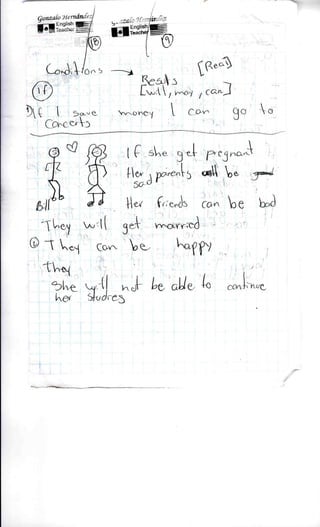 Gonzalo Hernández
English Teacher
English Teacher
18
19
Conditions → Results [Real]
If
[will, may, can]
If I save money I can go to
Concerts
If she get pregnant
Her parents will be
sad
Bill
Her friends can be bad
They will get married
They can be happy
they
She will not be able to continue
her studies